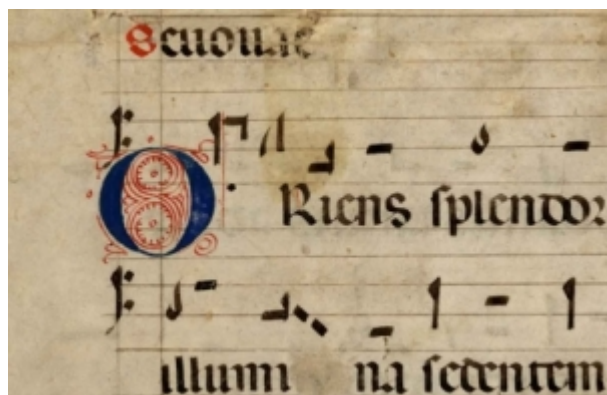 Seuouae
ORiens splendor
illumi na sedentem